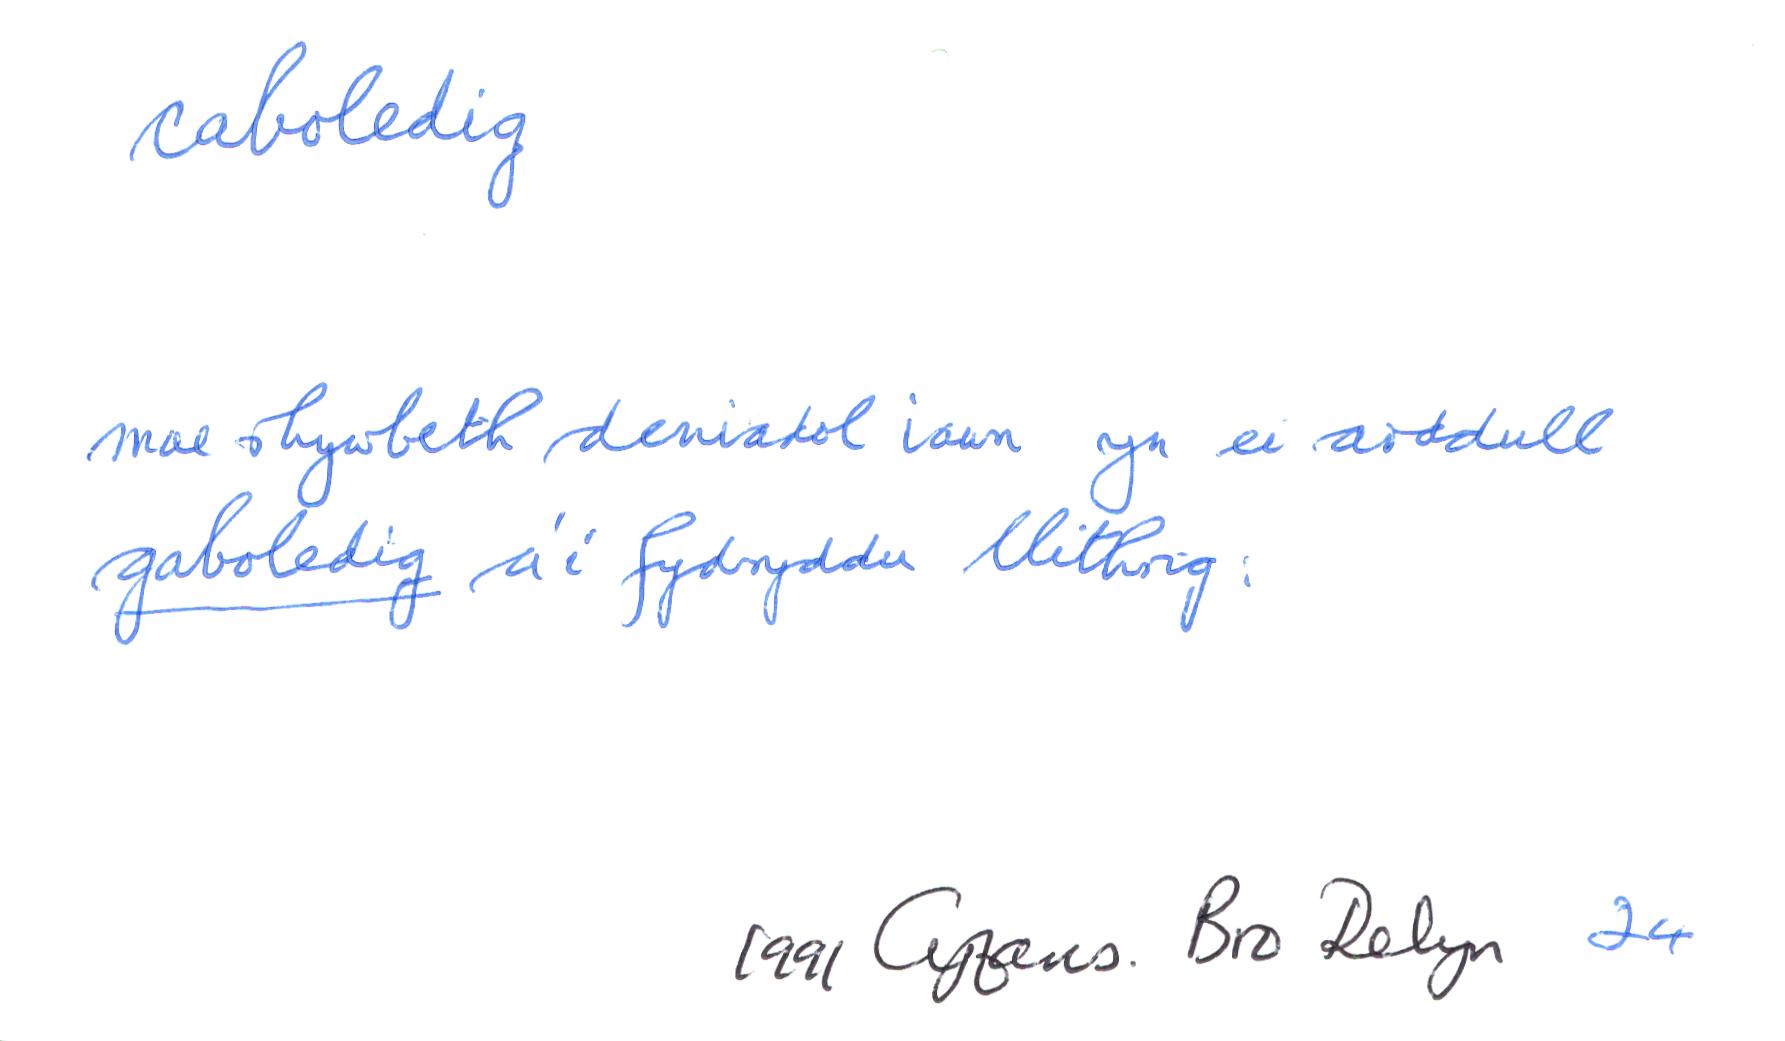 caboledig
mae rhywbeth deniadol iawn yn ei arddull
gaboledig a'i fydryddu llithrig;
1991 Cyfans. Bro Delyn 24